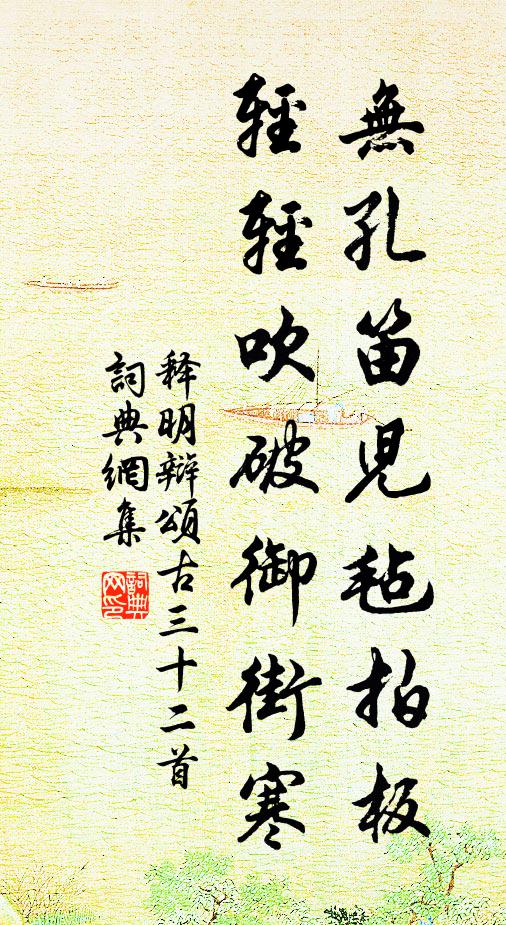 無孔笛兒毡拍板
輕輕吹破御街寒
释明辯頌古三十二首
詞典網集
詞典网印